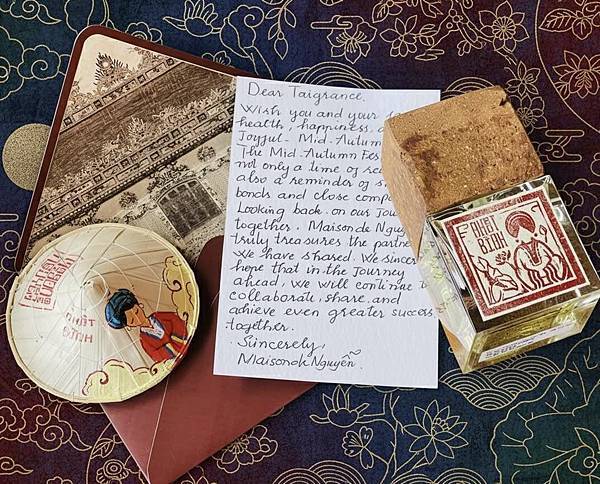 Dear Taigrance,
Wish you and your
health, happiness,
Joyful- Mid-Autumn
The Mid-Autumn Fes
not only a time of
also a reminder of
bonds and close
Looking back on our Jou
together, Maison de Nguy
truly treasures the partne
We have shared. We sincer
hope that in the Journey
ahead, we will continue t
collaborate, share, and
achieve even greater success
together.
Sincerely,
Maison de Nguyễn.
NHẬT
BÌNH
NHẬT
BÌNH